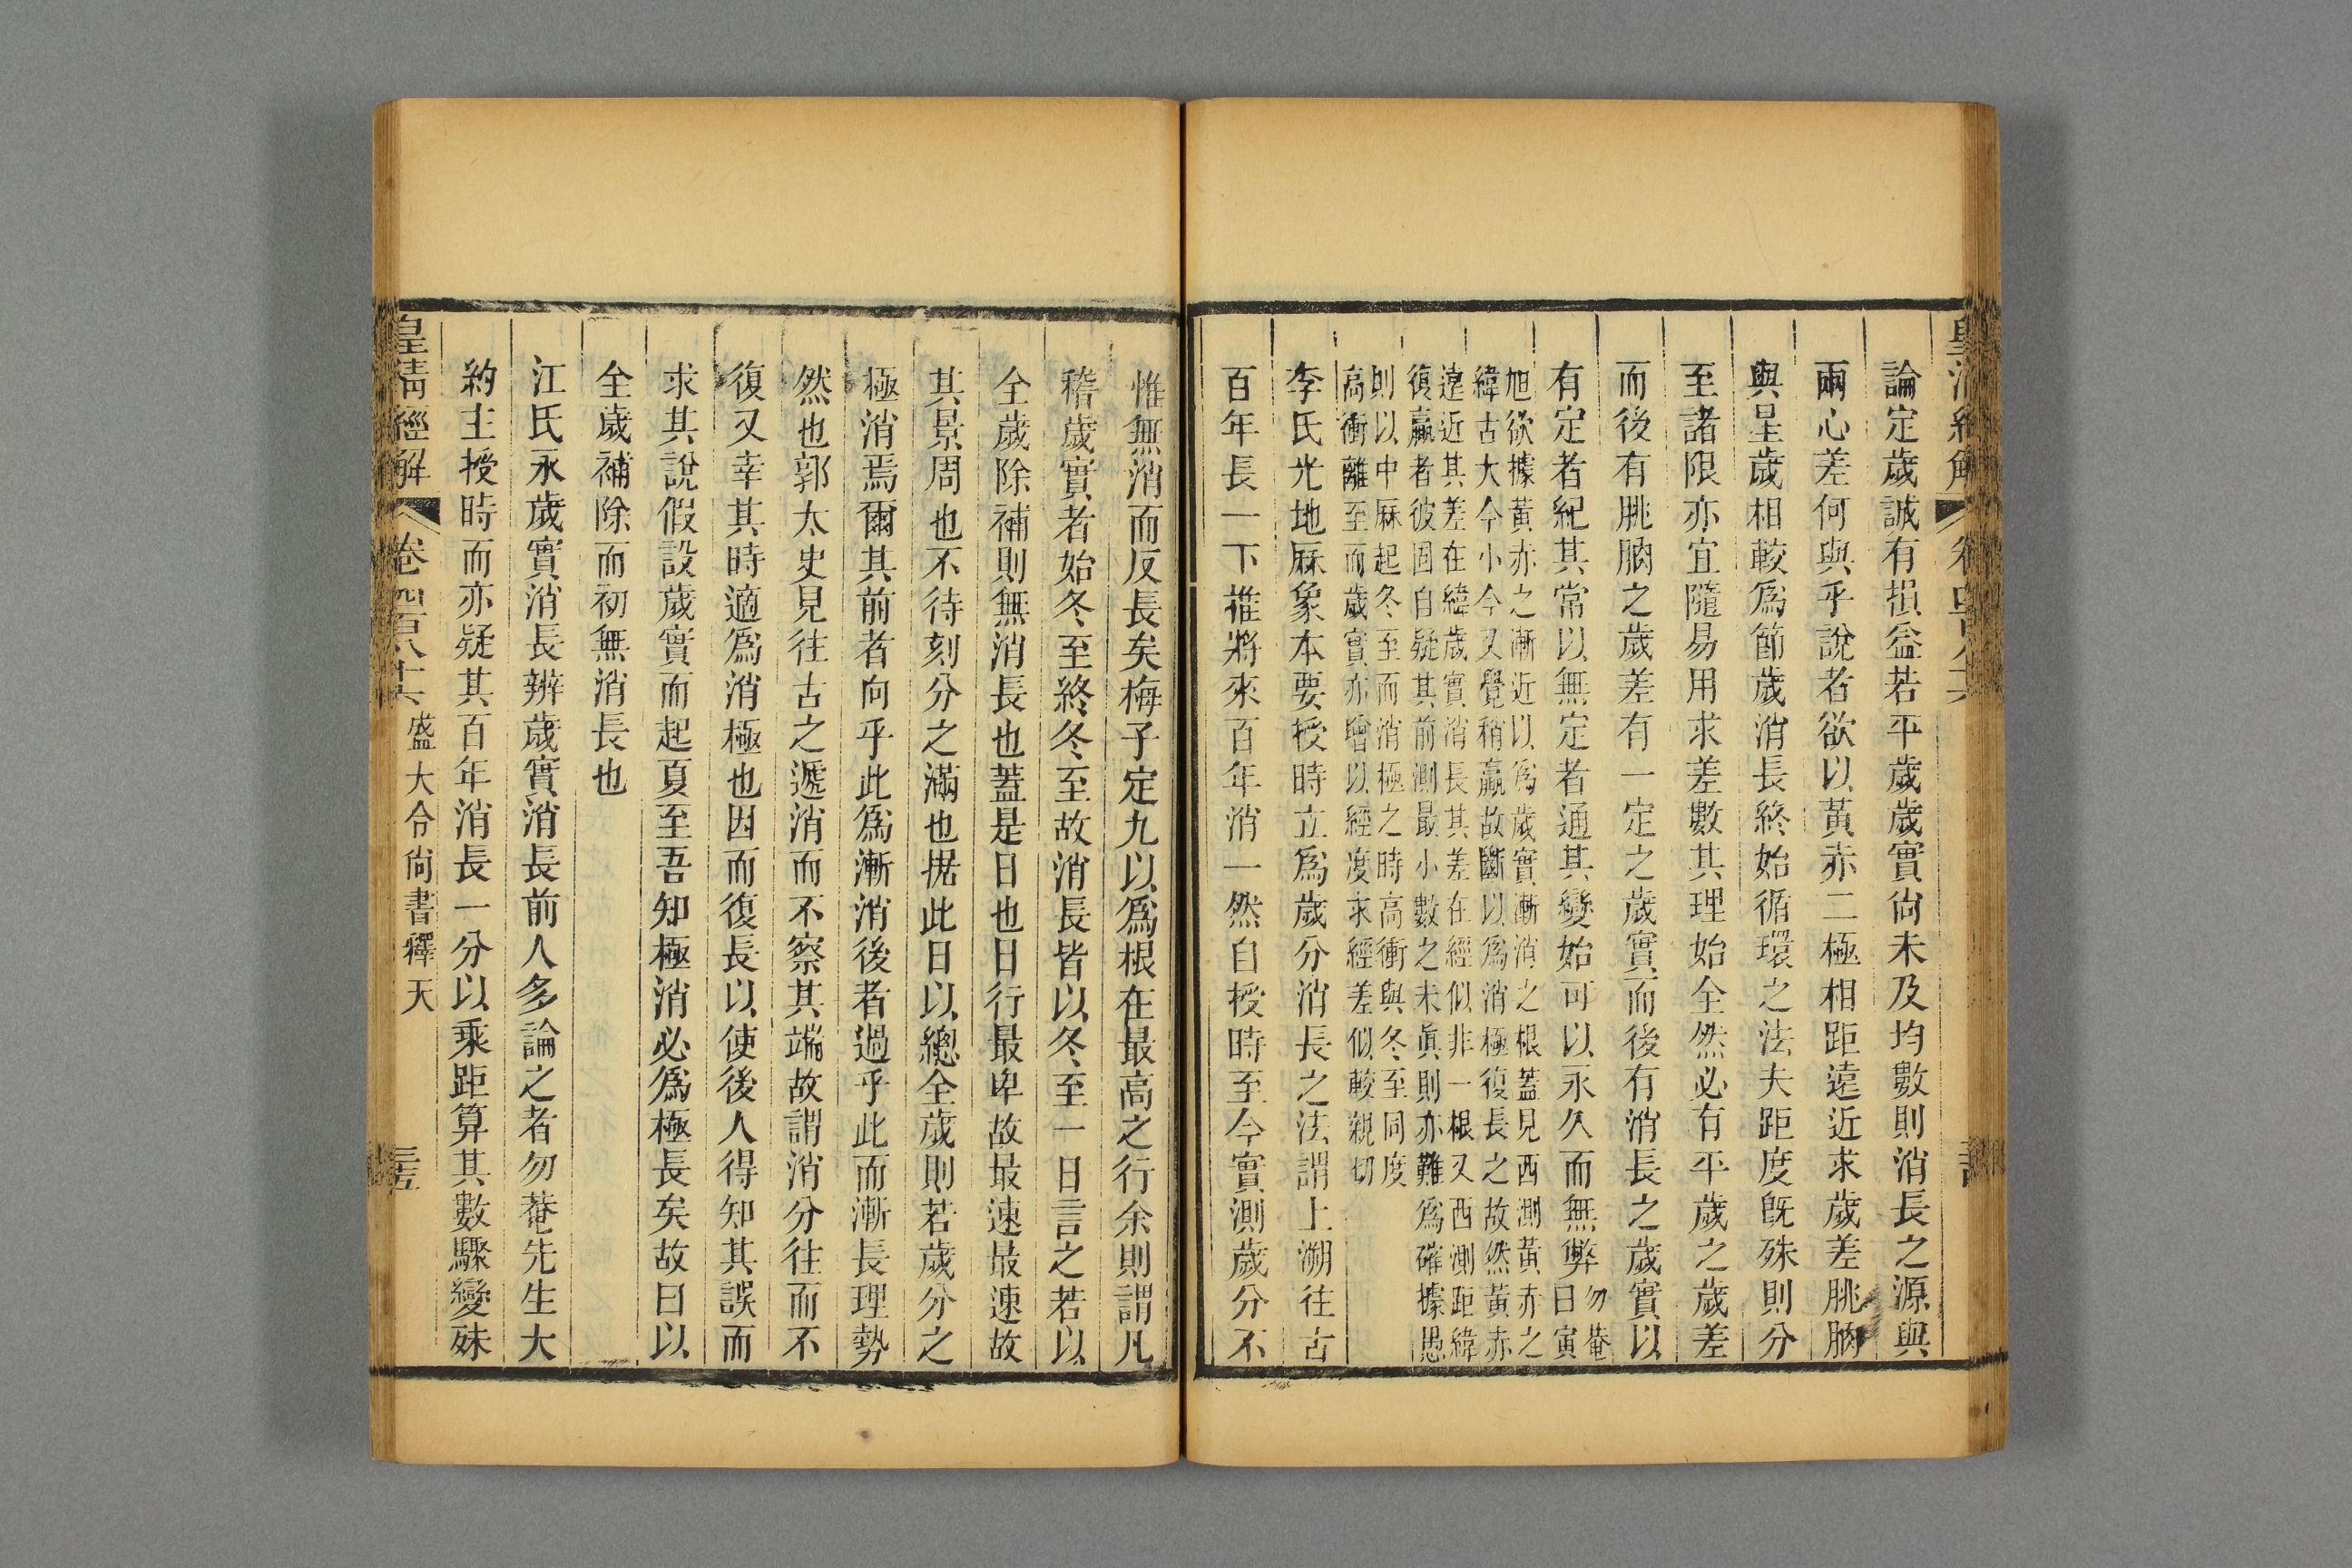 論定歲誠有損益若平歲歲實尙未及均數則消長之源與
兩心差何與乎說者欲以黃赤二極相距遠近求歲差朓朒
與星歲相較爲節歲消長終始循環之法夫距度旣殊則分
至諸限亦宜隨易用求差數其理始全然必有平歲之歲差
而後有朓朒之歲差有一定之歲實而後有消長之歲實以
有定者紀其常以無定者通其變始可以永久而無弊勿菴
曰寅
旭欲據黃赤之漸近以爲歲實漸消之根蓋見西測黃赤之
緯古大今小今又覺稍贏故斷以爲消極復長之故然黃赤
遠近其差在緯歲實消長其差在經似非一根又西測距緯
復贏者彼固自疑其前測最小數之未眞則亦難爲確據愚
則以中厤起冬至而消極之時高衝與冬至同度
高衝離至而歲實亦增以經度求經差似較親切
李氏光地厤象本要授時立爲歲分消長之法謂上溯往古
百年長一下推將來百年消一然自授時至今實測歲分不
惟無消而反長矣梅子定九以爲根在最高之行余則謂凡
稽歲實者始冬至終冬至故消長皆以冬至一日言之若以
全歲除補則無消長也蓋是日也日行最卑故最速最速故
其景周也不待刻分之滿也据此日以總全歲則若歲分之
極消焉爾其前者向乎此爲漸消後者過乎此而漸長理勢
然也郭太史見往古之遞消而不察其端故謂消分往而不
復又幸其時適爲消極也因而復長以使後人得知其誤而
求其說假設歲實而起夏至吾知極消必爲極長矣故曰以
全歲補除而初無消長也
江氏永歲實消長辨歲實消長前人多論之者勿菴先生大
約主授時而亦疑其百年消長一分以乘距算其數驟變殊
皇淸經解 卷四百八十六 盛大令尙書釋天 三五